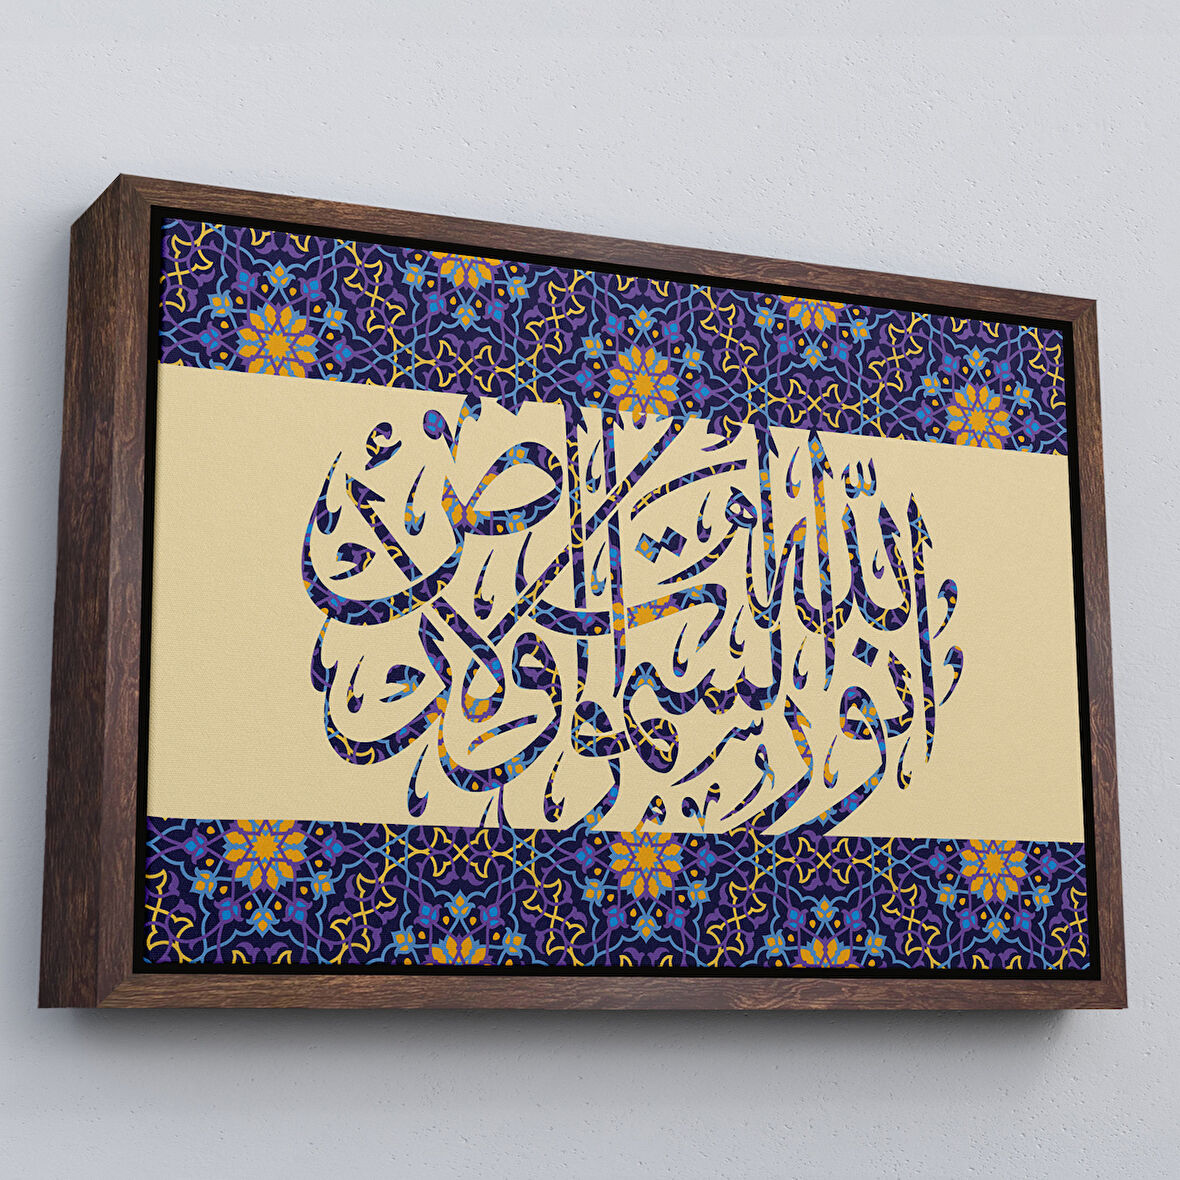 اَللّٰهُ نُورُ السَّمٰوَاتِ وَالْاَرْضِ